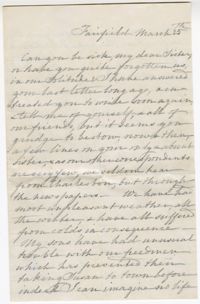 Fairfield March 25th
Can you be sick, my dear Sister,
or have you quite forgotten us,
in our solitude? I have answered
your last letter long ago, & en-
treated you to write soon again,
& tell me of yourself, & all of
our friends, but it seems you
grudge to bestow, now & then,
a few lines on your only & absent
sister, & as my other correspondents
are very few, we seldom hear
from Charleston, but through
the newspapers. We have had
most unpleasant weather, all
the winter, & have all suffered
from colds, in consequence.
My sons have had unusual
trouble with our freedmen
which has prevented their
taking to town before
indeed I can imagine his life